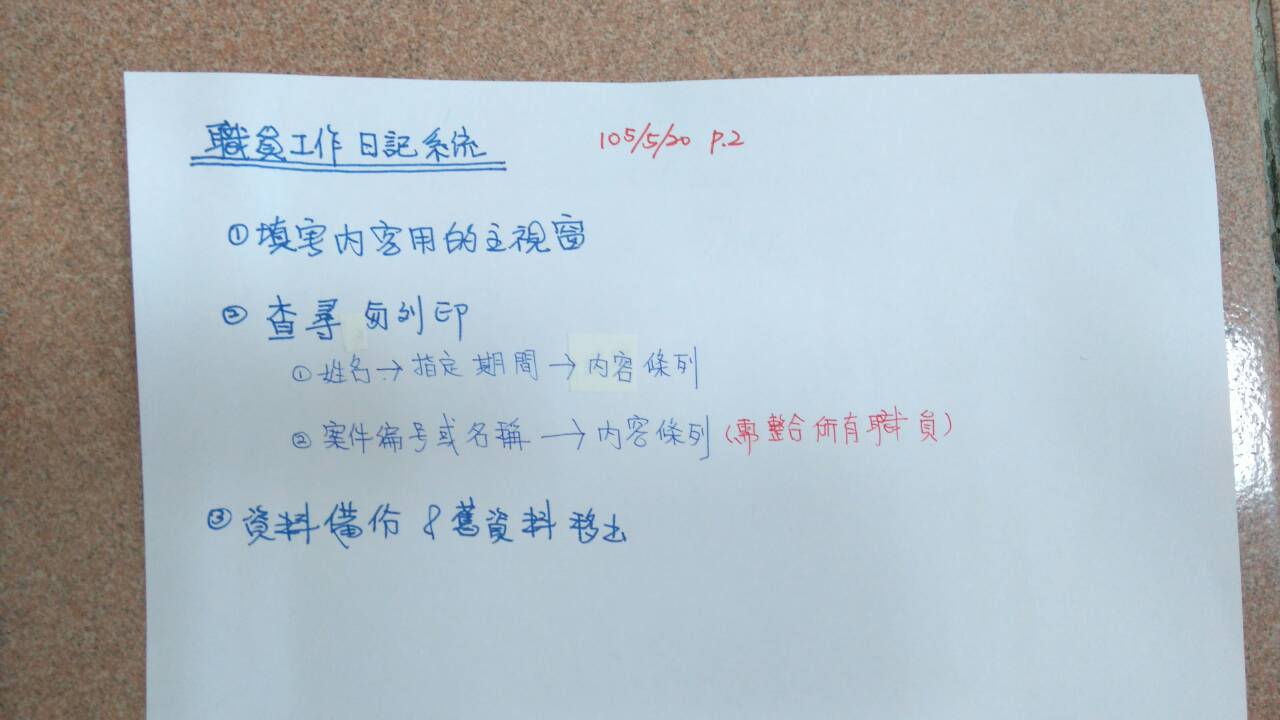 職員工作日記系統 105/5/20 P.2
① 填寫內容用的主視窗
② 查尋與列印
① 姓名→指定期間→內容條列
② 案件編号或名稱→內容條列(需整合所有職員)
③ 資料備份 & 舊資料移出